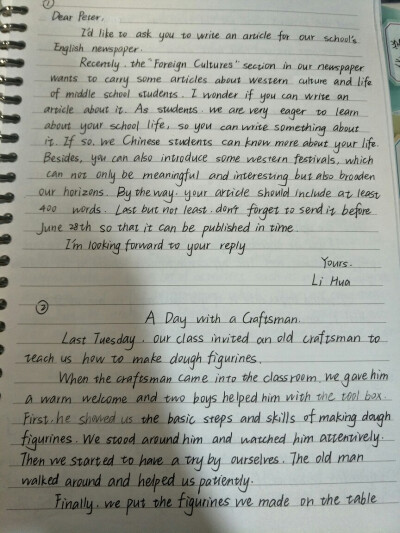 ①
Dear Peter,
I'd like to ask you to write an article for our school's
English newspaper.
Recently, the "Foreign Cultures" section in our newspaper
wants to carry some articles about western culture and life
of middle school students. I wonder if you can write an
article about it. As students, we are very eager to learn
about your school life, so you can write something about
it. If so, we Chinese students can know more about your life.
Besides, you can also introduce some western festivals, which
can not only be meaningful and interesting but also broaden
our horizons. By the way, your article should include at least
400 words. Last but not least, don't forget to send it before
June 28th so that it can be published in time.
I'm looking forward to your reply
Yours,
Li Hua
②
A Day with a Craftsman
Last Tuesday, our class invited an old craftsman to
teach us how to make dough figurines.
When the craftsman came into the classroom, we gave him
a warm welcome and two boys helped him with the tool box.
First, he showed us the basic steps and skills of making dough
figurines. We stood around him and watched him attentively.
Then we started to have a try by ourselves. The old man
walked around and helped us patiently.
Finally, we put the figurines we made on the table